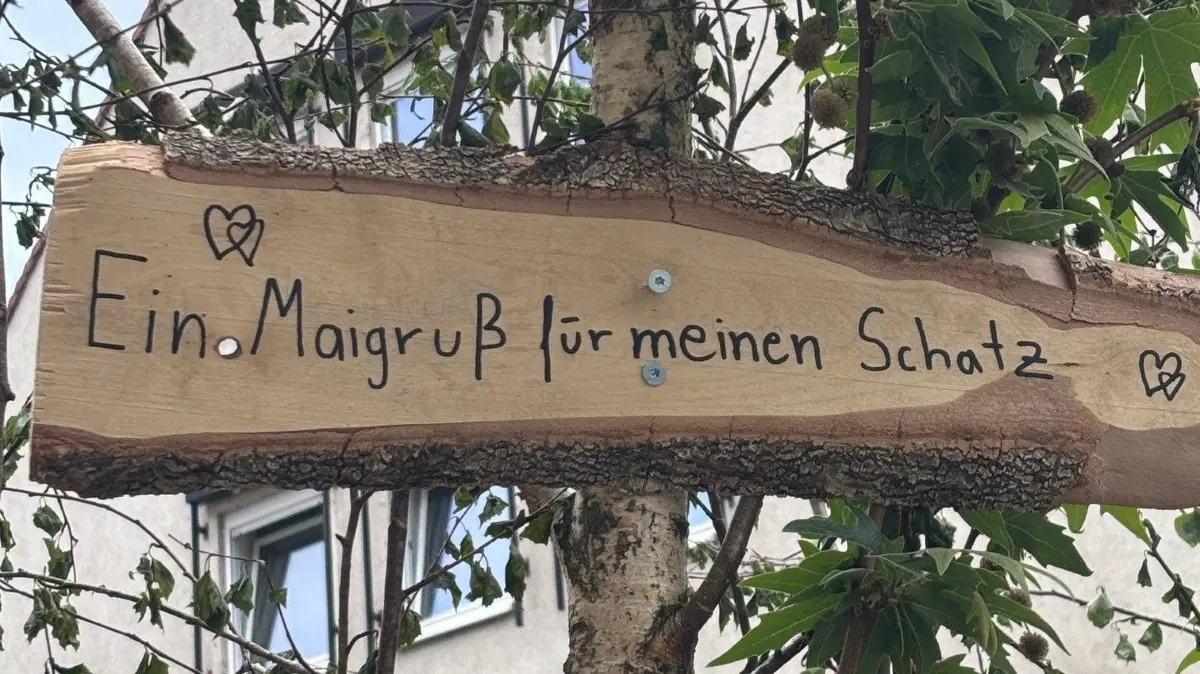 Ein Maigruß für meinen Schatz